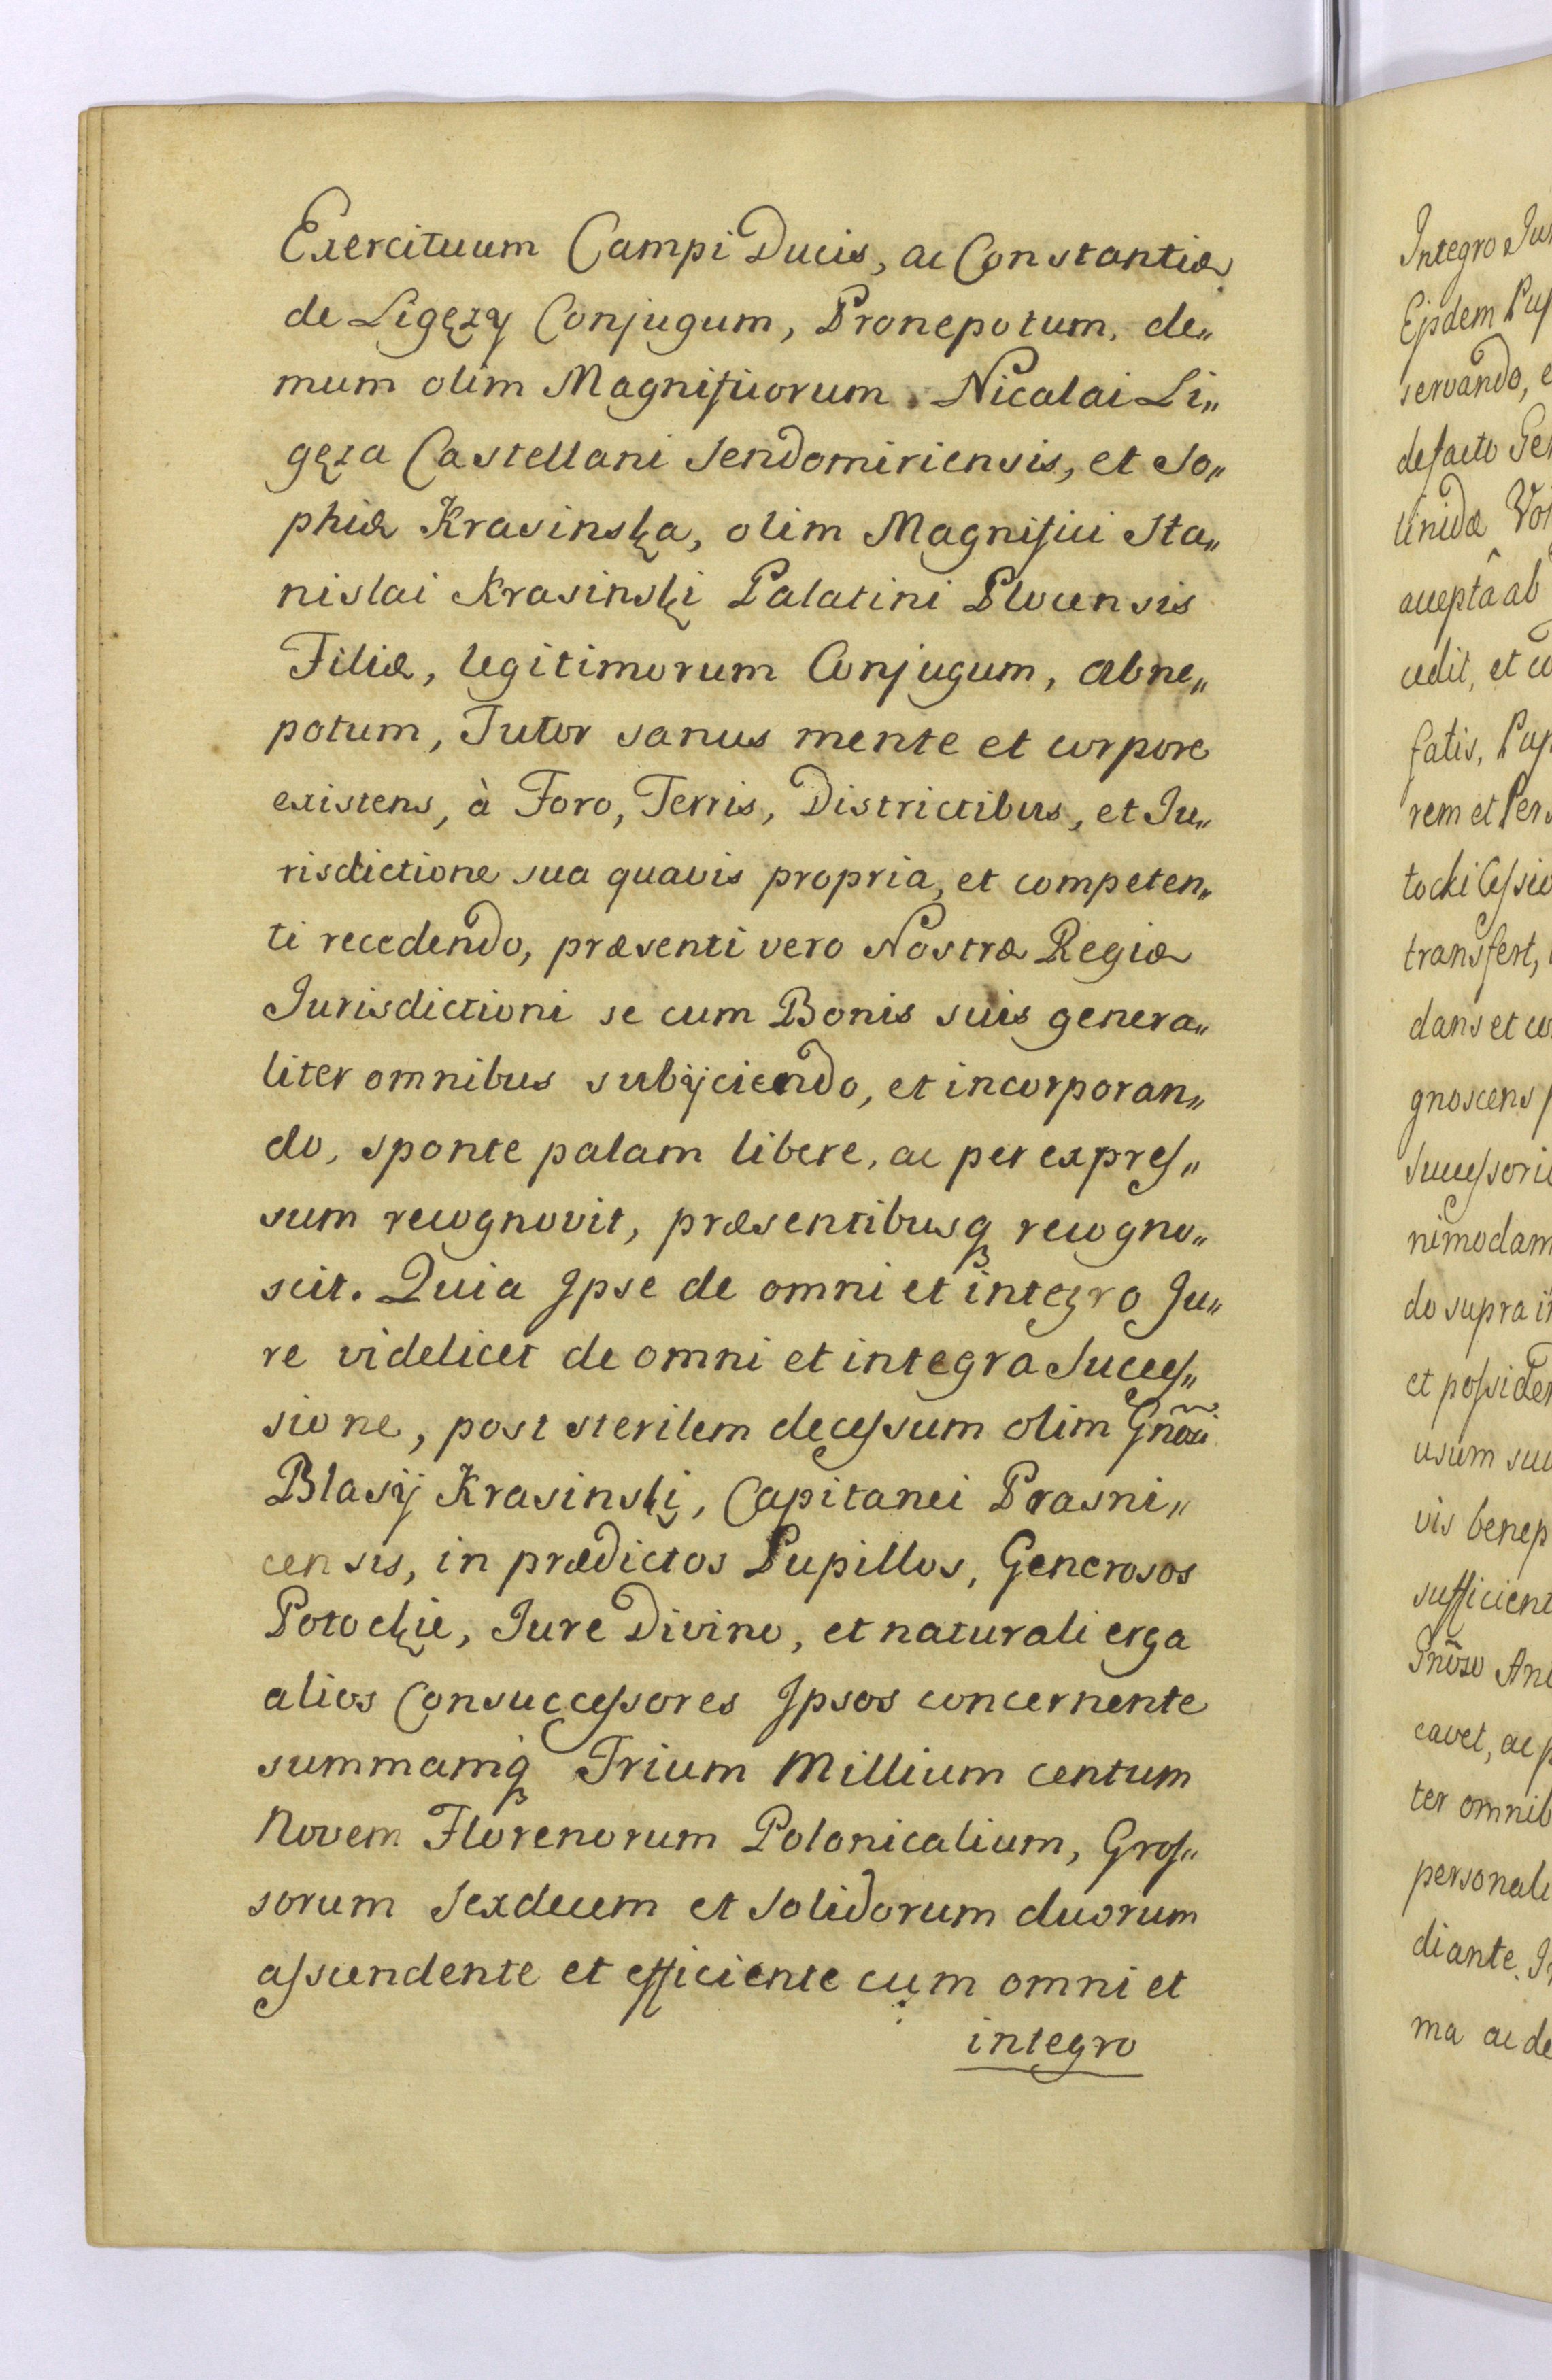 Exercituum Campi Ducis, ac Constantiæ
de Ligęzy Conjugum, Pronepotum, de„
mum olim Magnificorum Nicolai Li„
gęza Castellani Sendomiriensis, et So„
phiæ Krasinska, olim Magnifici Sta„
nislai Krasinski Palatini Plocensis
Filiæ, legitimorum Conjugum, abne„
potum, Tutor sanus mente et corpore
existens, à Foro, Terris, Districtibus, et Ju„
risdictione sua quavis propria, et competen„
ti recedendo, præsenti vero Nostræ Regiæ
Jurisdictioni se cum Bonis suis genera„
liter omnibus subijciendo, et incorporan„
do, sponte palam libere, ac per expres„
sum recognovit, præsentibusq recogno„
scit. Quia Ipse de omni et integro Ju„
re videlicet de omni et integra Succes„
sione, post sterilem decessum olim Gnõsi
Blasij Krasinski, Capitanei Prasni„
censis, in prædictos Pupillos, Generosos
Potockie, Jure Divino, et naturali erga
alios Consuccessores Ipsos concernente
summamq Trium Millium centum
Novem Florenorum Polonicalium, Gros„
sorum Sexdecem et Solidorum duorum
asscendente et efficiente cum omni et
integro
Integro Ju
Ejsdem Pup
servando, e
defacto Ge
linidæ Vo
acceptâ ab
cedit, et co
fatis, Pup
rem et Pers
tocki Cessio
transfert,
dans et co
gnoscens
Successori
nimodam
do supra i
et possiden
usum su
vis benep
sufficient
Gnõso An
cavet, ac p
ter omnib
personali
diante. I
ma ac de